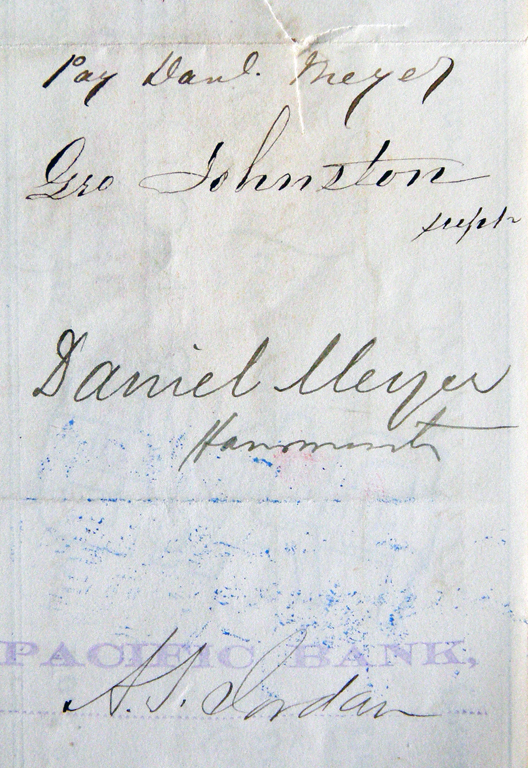 Pay Danl. Meyer
Geo Johnston
supt
Daniel Meyer
PACIFIC BANK,
A. S. Jordan